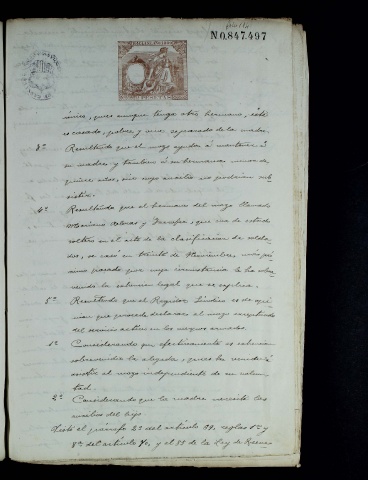 N 0,847,497
único, pues aunque tenga otro hermano, éste
es casado, pobre, y vive separado de la madre.
3º Resultando que el mozo ayuda á mantener á
su madre, y tambien á su hermana menor,
quienes sin auxilio no podrian sub-
sistir.
4º Resultando que el hermano del mozo llamado
Mariano y que era de estado
soltero en el acto de la clasificacion de solda-
dos, se casó en treinta de Noviembre pró-
ximo pasado por cuya circunstancia le ha sobre-
venido la excepcion legal que se explica.
5º Resultando que el Regidor Síndico es de opi-
nion que procede declarar al mozo exceptuado
del servicio activo en los cuerpos armados.
1º Considerando que efectivamente es excepcion
sobrevenida la alegada, pues ha venido á
al mozo independiente de su volun-
tad.
2º Considerando que la madre necesita los
auxilios del hijo
Visto el párrafo 2º del artículo 69, reglas 1ª y
8ª del artículo 70, y el 59 de la Ley de Reem-